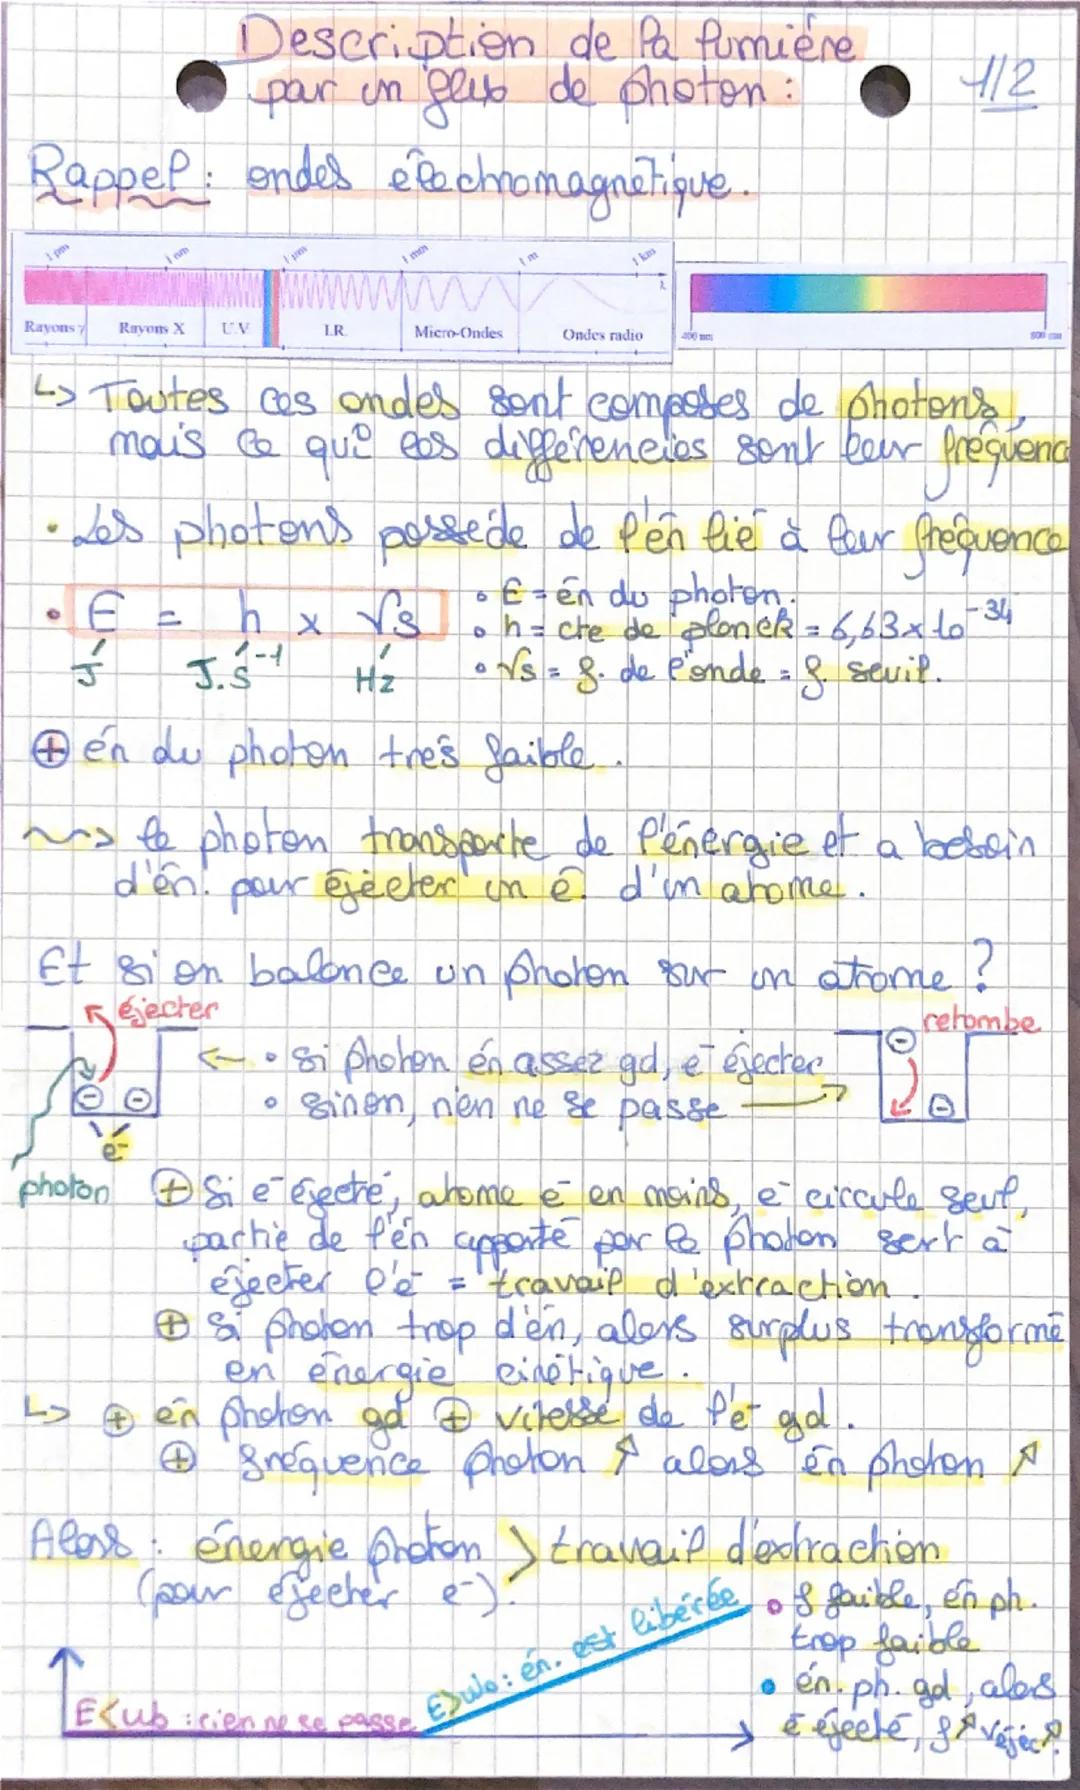 Description de la lumière
par un flux de photon :
1/2
Rappel : ondes électromagnétique.
1 pm 1 nm 1 µm 1 mm 1 m 1 km
λ
Rayons γ Rayons X U.V I.R. Micro-Ondes Ondes radio
400 nm 800 nm
↳ Toutes ces ondes sont composés de photons,
mais ce qui les différencies sont leur fréquenc
• Les photons possède de l'én lié à leur fréquence
• E = h x √s
J J.s⁻¹ Hz
• E = én du photon.
• h = cte de planck = 6,63 x 10⁻³⁴
• √s = f. de l'onde = f. seuil.
⊕ én du photon très faible.
~> le photon transporte de l'énergie et a besoin
d'én. pour éjecter un e⁻ d'un atome.
Et si on balance un photon sur un atome ?
éjecter
retombe
← • si photon én assez gd, e⁻ éjecter
• sinon, rien ne se passe →
e⁻
photon
⊕ Si e⁻ éjecté, atome e⁻ en moins, e⁻ circule seul,
partie de l'én apporté par le photon sert à
éjecter l'e⁻ = travail d'extraction.
⊕ si photon trop d'én, alors surplus transformé
en énergie cinétique.
↳ ⊕ én photon gd ⊕ vitesse de l'e⁻ gd.
⊕ fréquence photon ↗ alors én photon ↗
Alors : énergie photon > travail d'extraction
(pour éjecter e⁻).
E<wb : rien ne se passe
E>wo : én. est libérée
• f faible, én ph.
trop faible
• én. ph. gd, alors
e⁻ éjecté, f↗ véjec↗